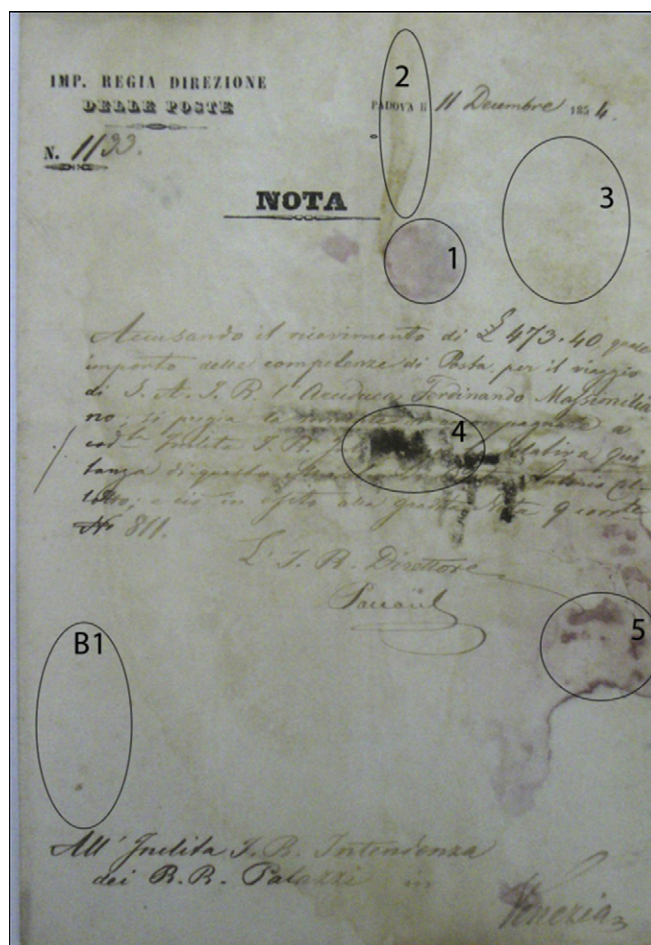 IMP. REGIA DIREZIONE
DELLE POSTE
PADOVA li 11 Decembre 1854.
N. 1193.
NOTA
2
3
1
Accusando il ricevimento di £ 473.40, quale
importo delle competenze di Posta per il viaggio
di S. A. I. R. l'Arciduca Ferdinando Massimilia
no, si pregia la
cod.ta Inclita I. R. relativa Qui
tanza di questo Antonio
in esito alla grata Nota 9 corrte
No 811.
4
L'I. R. Direttore
5
B1
All'Inclita I. R. Intendenza
dei R. R. Palazzi in
Venezia